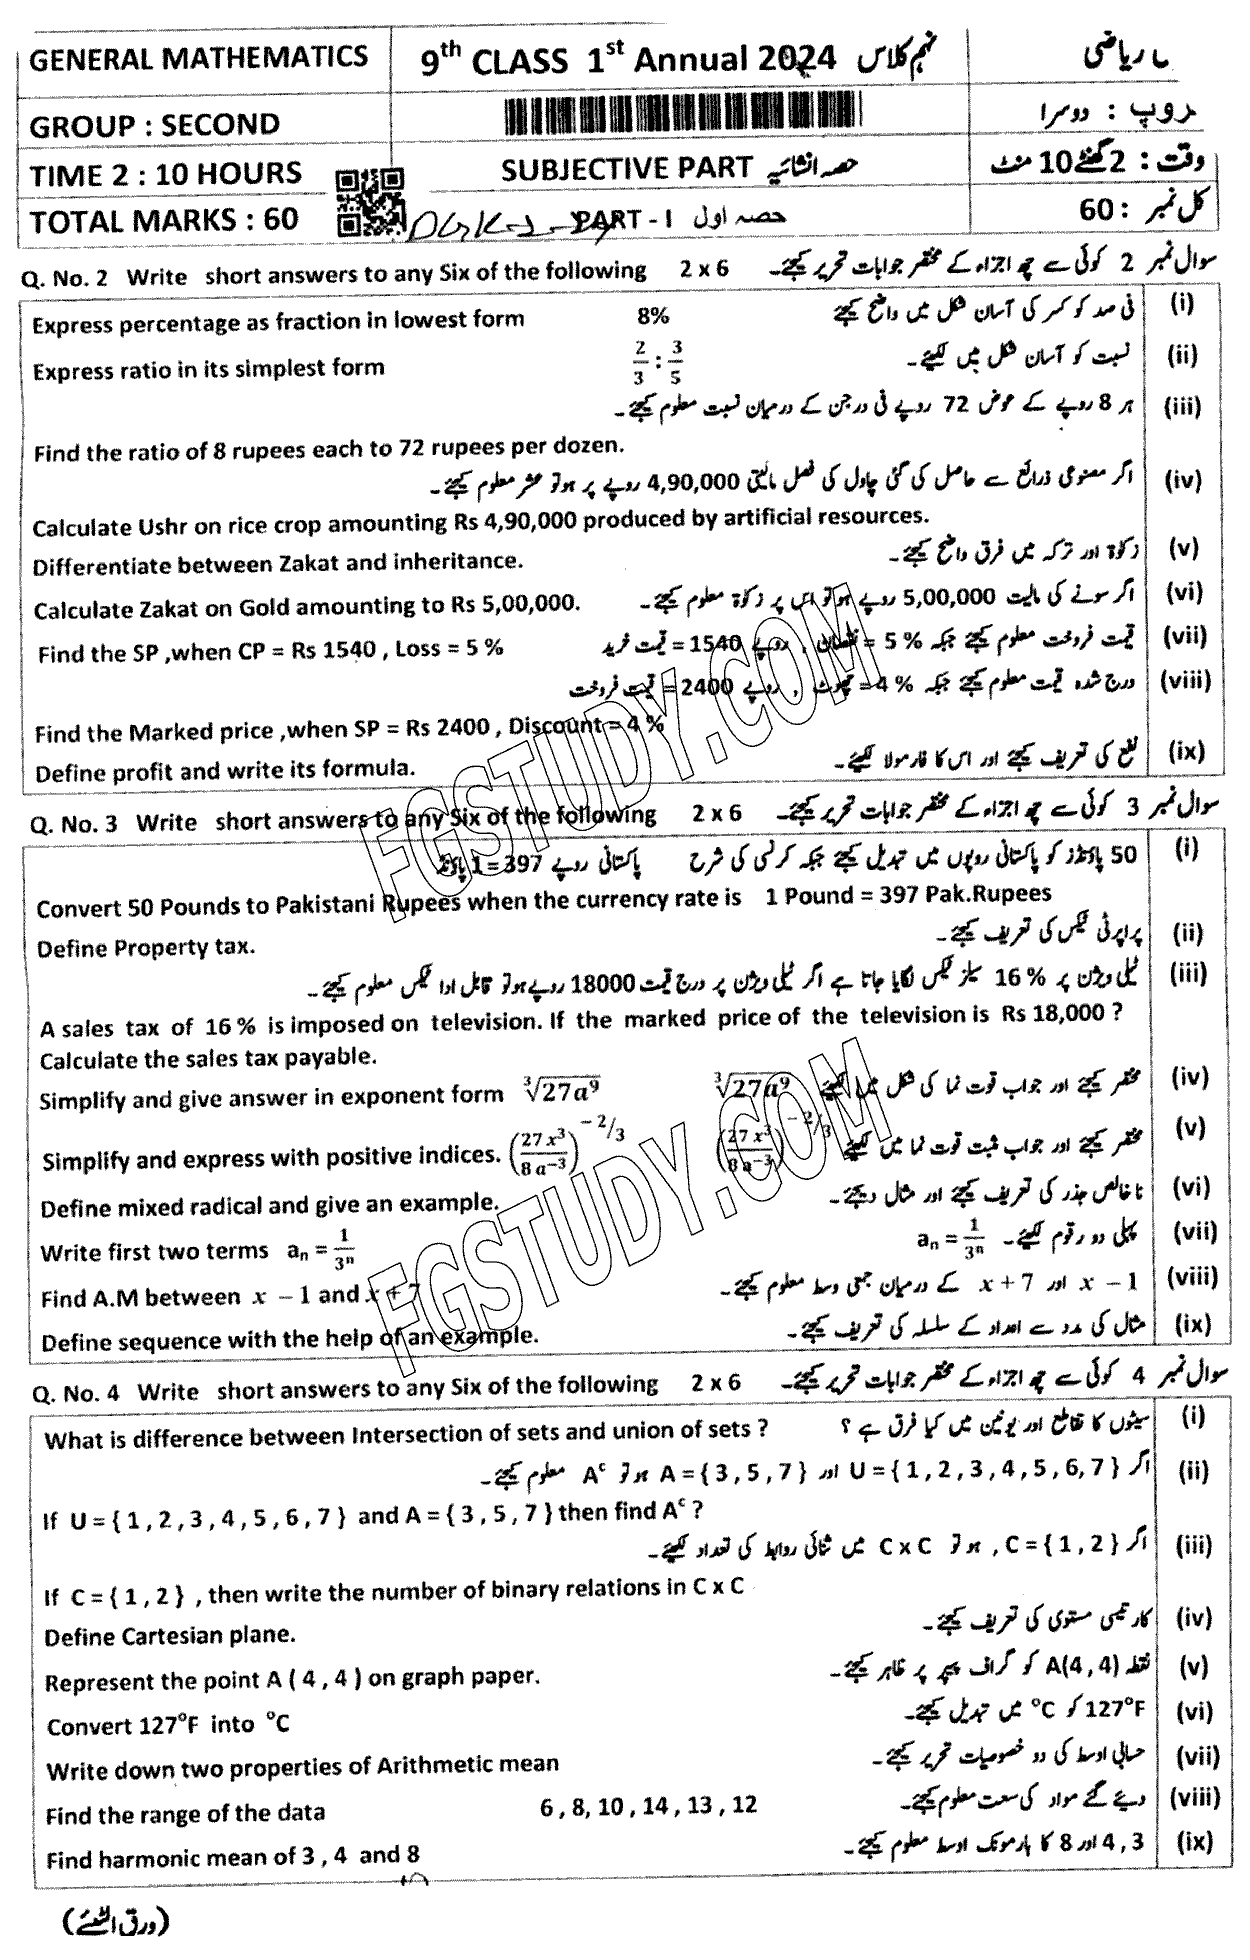 GENERAL MATHEMATICS 9th CLASS 1st Annual 2024 نہم کلاس ریاضی
GROUP : SECOND روپ : دوسرا
TIME 2 : 10 HOURS SUBJECTIVE PART حصہ انشائیہ وقت : 2 گھنٹے 10 منٹ
TOTAL MARKS : 60 PART - I حصہ اول کل نمبر : 60
Q. No. 2 Write short answers to any Six of the following 2 x 6 سوال نمبر 2 کوئی سے چھ اجزاء کے مختصر جوابات تحریر کیجئے۔
Express percentage as fraction in lowest form 8% فی صد کو کسر کی آسان شکل میں واضح کیجئے (i)
Express ratio in its simplest form 2/3 : 3/5 نسبت کو آسان شکل میں لکھیئے۔ (ii)
ہر 8 روپے کے عوض 72 روپے فی درجن کے درمیان نسبت معلوم کیجئے۔ (iii)
Find the ratio of 8 rupees each to 72 rupees per dozen.
اگر مصنوعی ذرائع سے حاصل کی گئی چاول کی فصل مالیتی 4,90,000 روپے پر ہو تو عشر معلوم کیجئے۔ (iv)
Calculate Ushr on rice crop amounting Rs 4,90,000 produced by artificial resources.
Differentiate between Zakat and inheritance. زکوٰۃ اور ترکہ میں فرق واضح کیجئے۔ (v)
Calculate Zakat on Gold amounting to Rs 5,00,000. اگر سونے کی مالیت 5,00,000 روپے ہو تو اس پر زکوٰۃ معلوم کیجئے۔ (vi)
Find the SP ,when CP = Rs 1540 , Loss = 5 % قیمت فروخت معلوم کیجئے جبکہ 5 % = نقصان , روپے 1540 = قیمت خرید (vii)
درج شدہ قیمت معلوم کیجئے جبکہ 4 % = چھوٹ , روپے 2400 = قیمت فروخت (viii)
Find the Marked price ,when SP = Rs 2400 , Discount = 4 %
Define profit and write its formula. نفع کی تعریف کیجئے اور اس کا فارمولا لکھیئے۔ (ix)
Q. No. 3 Write short answers to any Six of the following 2 x 6 سوال نمبر 3 کوئی سے چھ اجزاء کے مختصر جوابات تحریر کیجئے۔
50 پاؤنڈز کو پاکستانی روپوں میں تبدیل کیجئے جبکہ کرنسی کی شرح پاکستانی روپے 397 = 1 پاؤنڈ (i)
Convert 50 Pounds to Pakistani Rupees when the currency rate is 1 Pound = 397 Pak.Rupees
Define Property tax. پراپرٹی ٹیکس کی تعریف کیجئے۔ (ii)
ٹیلی ویژن پر 16 % سیلز ٹیکس لگایا جاتا ہے اگر ٹیلی ویژن پر درج قیمت 18000 روپے ہو تو قابل ادا ٹیکس معلوم کیجئے۔ (iii)
A sales tax of 16 % is imposed on television. If the marked price of the television is Rs 18,000 ?
Calculate the sales tax payable.
Simplify and give answer in exponent form ∛(27a⁹) ∛(27a⁹) مختصر کیجئے اور جواب قوت نما کی شکل میں لکھیئے (iv)
Simplify and express with positive indices. (27 x³ / 8 a⁻³)^(−2/3) (27 x³ / 8 a⁻³)^(−2/3) مختصر کیجئے اور جواب مثبت قوت نما میں لکھیئے (v)
Define mixed radical and give an example. نا خالص جذر کی تعریف کیجئے اور مثال دیجئے۔ (vi)
Write first two terms aₙ = 1/3ⁿ aₙ = 1/3ⁿ پہلی دو رقوم لکھیئے۔ (vii)
Find A.M between x − 1 and x + 7 x − 1 اور x + 7 کے درمیان جمعی وسط معلوم کیجئے۔ (viii)
Define sequence with the help of an example. مثال کی مدد سے اعداد کے سلسلہ کی تعریف کیجئے۔ (ix)
Q. No. 4 Write short answers to any Six of the following 2 x 6 سوال نمبر 4 کوئی سے چھ اجزاء کے مختصر جوابات تحریر کیجئے۔
What is difference between Intersection of sets and union of sets ? سیٹوں کا تقاطع اور یونین میں کیا فرق ہے ؟ (i)
اگر U = { 1 , 2 , 3 , 4 , 5 , 6, 7 } اور A = { 3 , 5 , 7 } ہو تو Aᶜ معلوم کیجئے۔ (ii)
If U = { 1 , 2 , 3 , 4 , 5 , 6 , 7 } and A = { 3 , 5 , 7 } then find Aᶜ ?
اگر C = { 1 , 2 } , ہو تو C x C میں ثنائی روابط کی تعداد لکھیئے۔ (iii)
If C = { 1 , 2 } , then write the number of binary relations in C x C
Define Cartesian plane. کارتیسی مستوی کی تعریف کیجئے۔ (iv)
Represent the point A ( 4 , 4 ) on graph paper. نقطہ A(4 , 4) کو گراف پیپر پر ظاہر کیجئے۔ (v)
Convert 127°F into °C 127°F کو °C میں تبدیل کیجئے۔ (vi)
Write down two properties of Arithmetic mean حسابی اوسط کی دو خصوصیات تحریر کیجئے۔ (vii)
Find the range of the data 6 , 8 , 10 , 14 , 13 , 12 دیئے گئے مواد کی سعت معلوم کیجئے۔ (viii)
Find harmonic mean of 3 , 4 and 8 3 , 4 اور 8 کا ہارمونک اوسط معلوم کیجئے۔ (ix)
(ورق الٹئے)
FGSTUDY.COM
FGSTUDY.COM